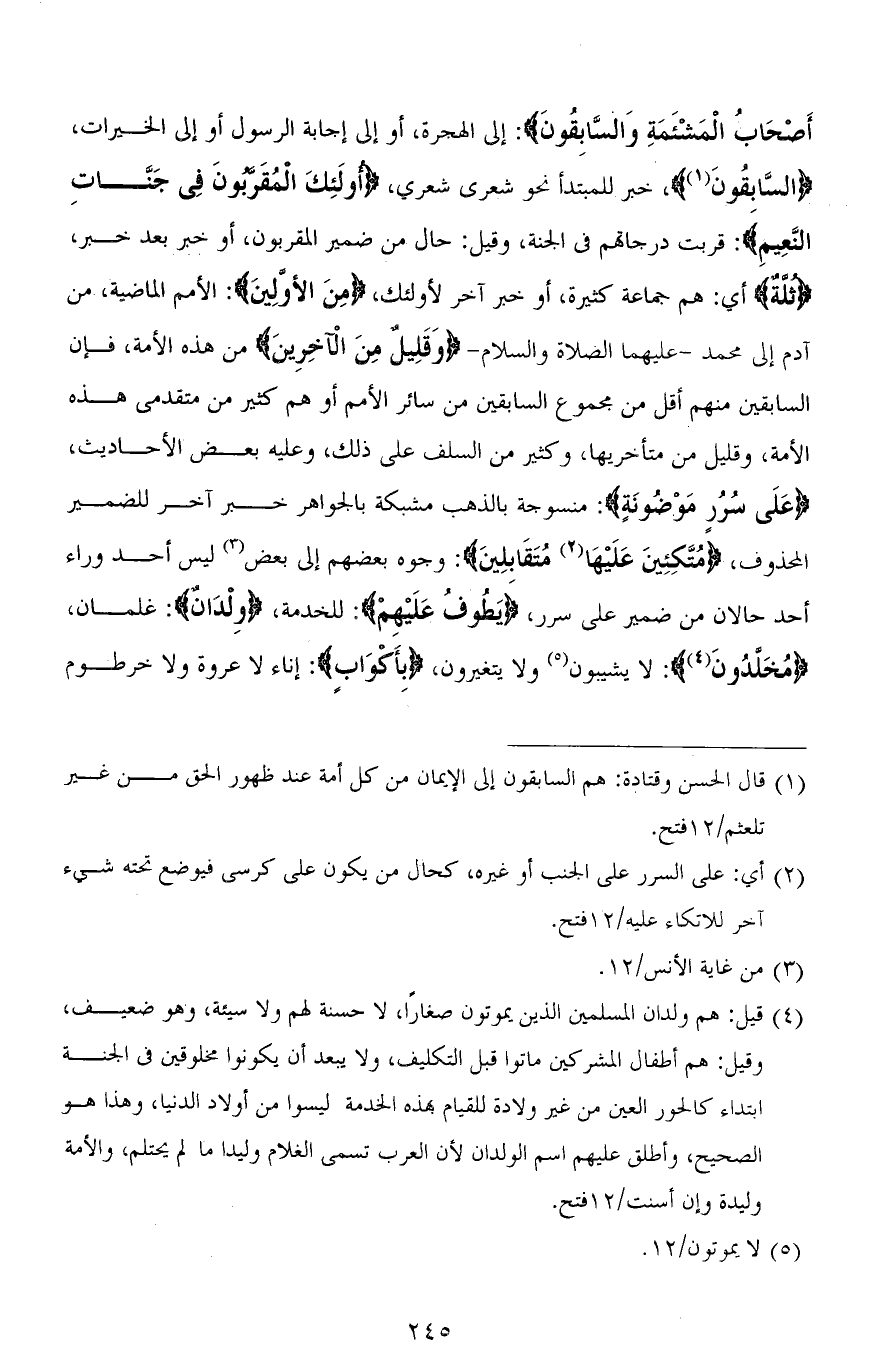 أَصْحَابُ الْمَشْئَمَةِ وَالسَّابِقُونَ﴾: إلى الهجرة، أو إلى إجابة الرسول أو إلى الخيرات،
﴿السَّابِقُونَ(١)﴾، خبر للمبتدأ نحو شعرى شعري، ﴿أُولَئِكَ الْمُقَرَّبُونَ فِى جَنَّاتِ
النَّعِيمِ﴾: قربت درجاتهم فى الجنة، وقيل: حال من ضمير المقربون، أو خبر بعد خبر،
﴿ثُلَّةٌ﴾ أي: هم جماعة كثيرة، أو خبر آخر لأولئك، ﴿مِنَ الأوَّلِينَ﴾: الأمم الماضية، من
آدم إلى محمد -عليهما الصلاة والسلام- ﴿وَقَلِيلٌ مِنَ الْآخِرِينَ﴾ من هذه الأمة، فإن
السابقين منهم أقل من مجموع السابقين من سائر الأمم أو هم كثير من متقدمى هذه
الأمة، وقليل من متأخريها، وكثير من السلف على ذلك، وعليه بعض الأحاديث،
﴿عَلَى سُرُرٍ مَوْضُونَةٍ﴾: منسوجة بالذهب مشبكة بالجواهر خبر آخر للضمير
المحذوف، ﴿مُتَّكِئِينَ عَلَيْهَا(٢) مُتَقَابِلِينَ﴾: وجوه بعضهم إلى بعض(٣) ليس أحد وراء
أحد حالان من ضمير على سرر، ﴿يَطُوفُ عَلَيْهِمْ﴾: للخدمة، ﴿وِلْدَانٌ﴾: غلمان،
﴿مُخَلَّدُونَ(٤)﴾: لا يشيبون(٥) ولا يتغيرون، ﴿بِأَكْوَابٍ﴾: إناء لا عروة ولا خرطوم
(١) قال الحسن وقتادة: هم السابقون إلى الإيمان من كل أمة عند ظهور الحق من غير
تلعثم/١٢فتح.
(٢) أي: على السرر على الجنب أو غيره، كحال من يكون على كرسى فيوضع تحته شيء
آخر للاتكاء عليه/١٢فتح.
(٣) من غاية الأنس/١٢.
(٤) قيل: هم ولدان المسلمين الذين يموتون صغارًا، لا حسنة لهم ولا سيئة، وهو ضعيف،
وقيل: هم أطفال المشركين ماتوا قبل التكليف، ولا يبعد أن يكونوا مخلوقين فى الجنة
ابتداء كالحور العين من غير ولادة للقيام بهذه الخدمة ليسوا من أولاد الدنيا، وهذا هو
الصحيح، وأطلق عليهم اسم الولدان لأن العرب تسمى الغلام وليدا ما لم يحتلم، والأمة
وليدة وإن أسنت/١٢فتح.
(٥) لا يموتون/١٢.
٢٤٥